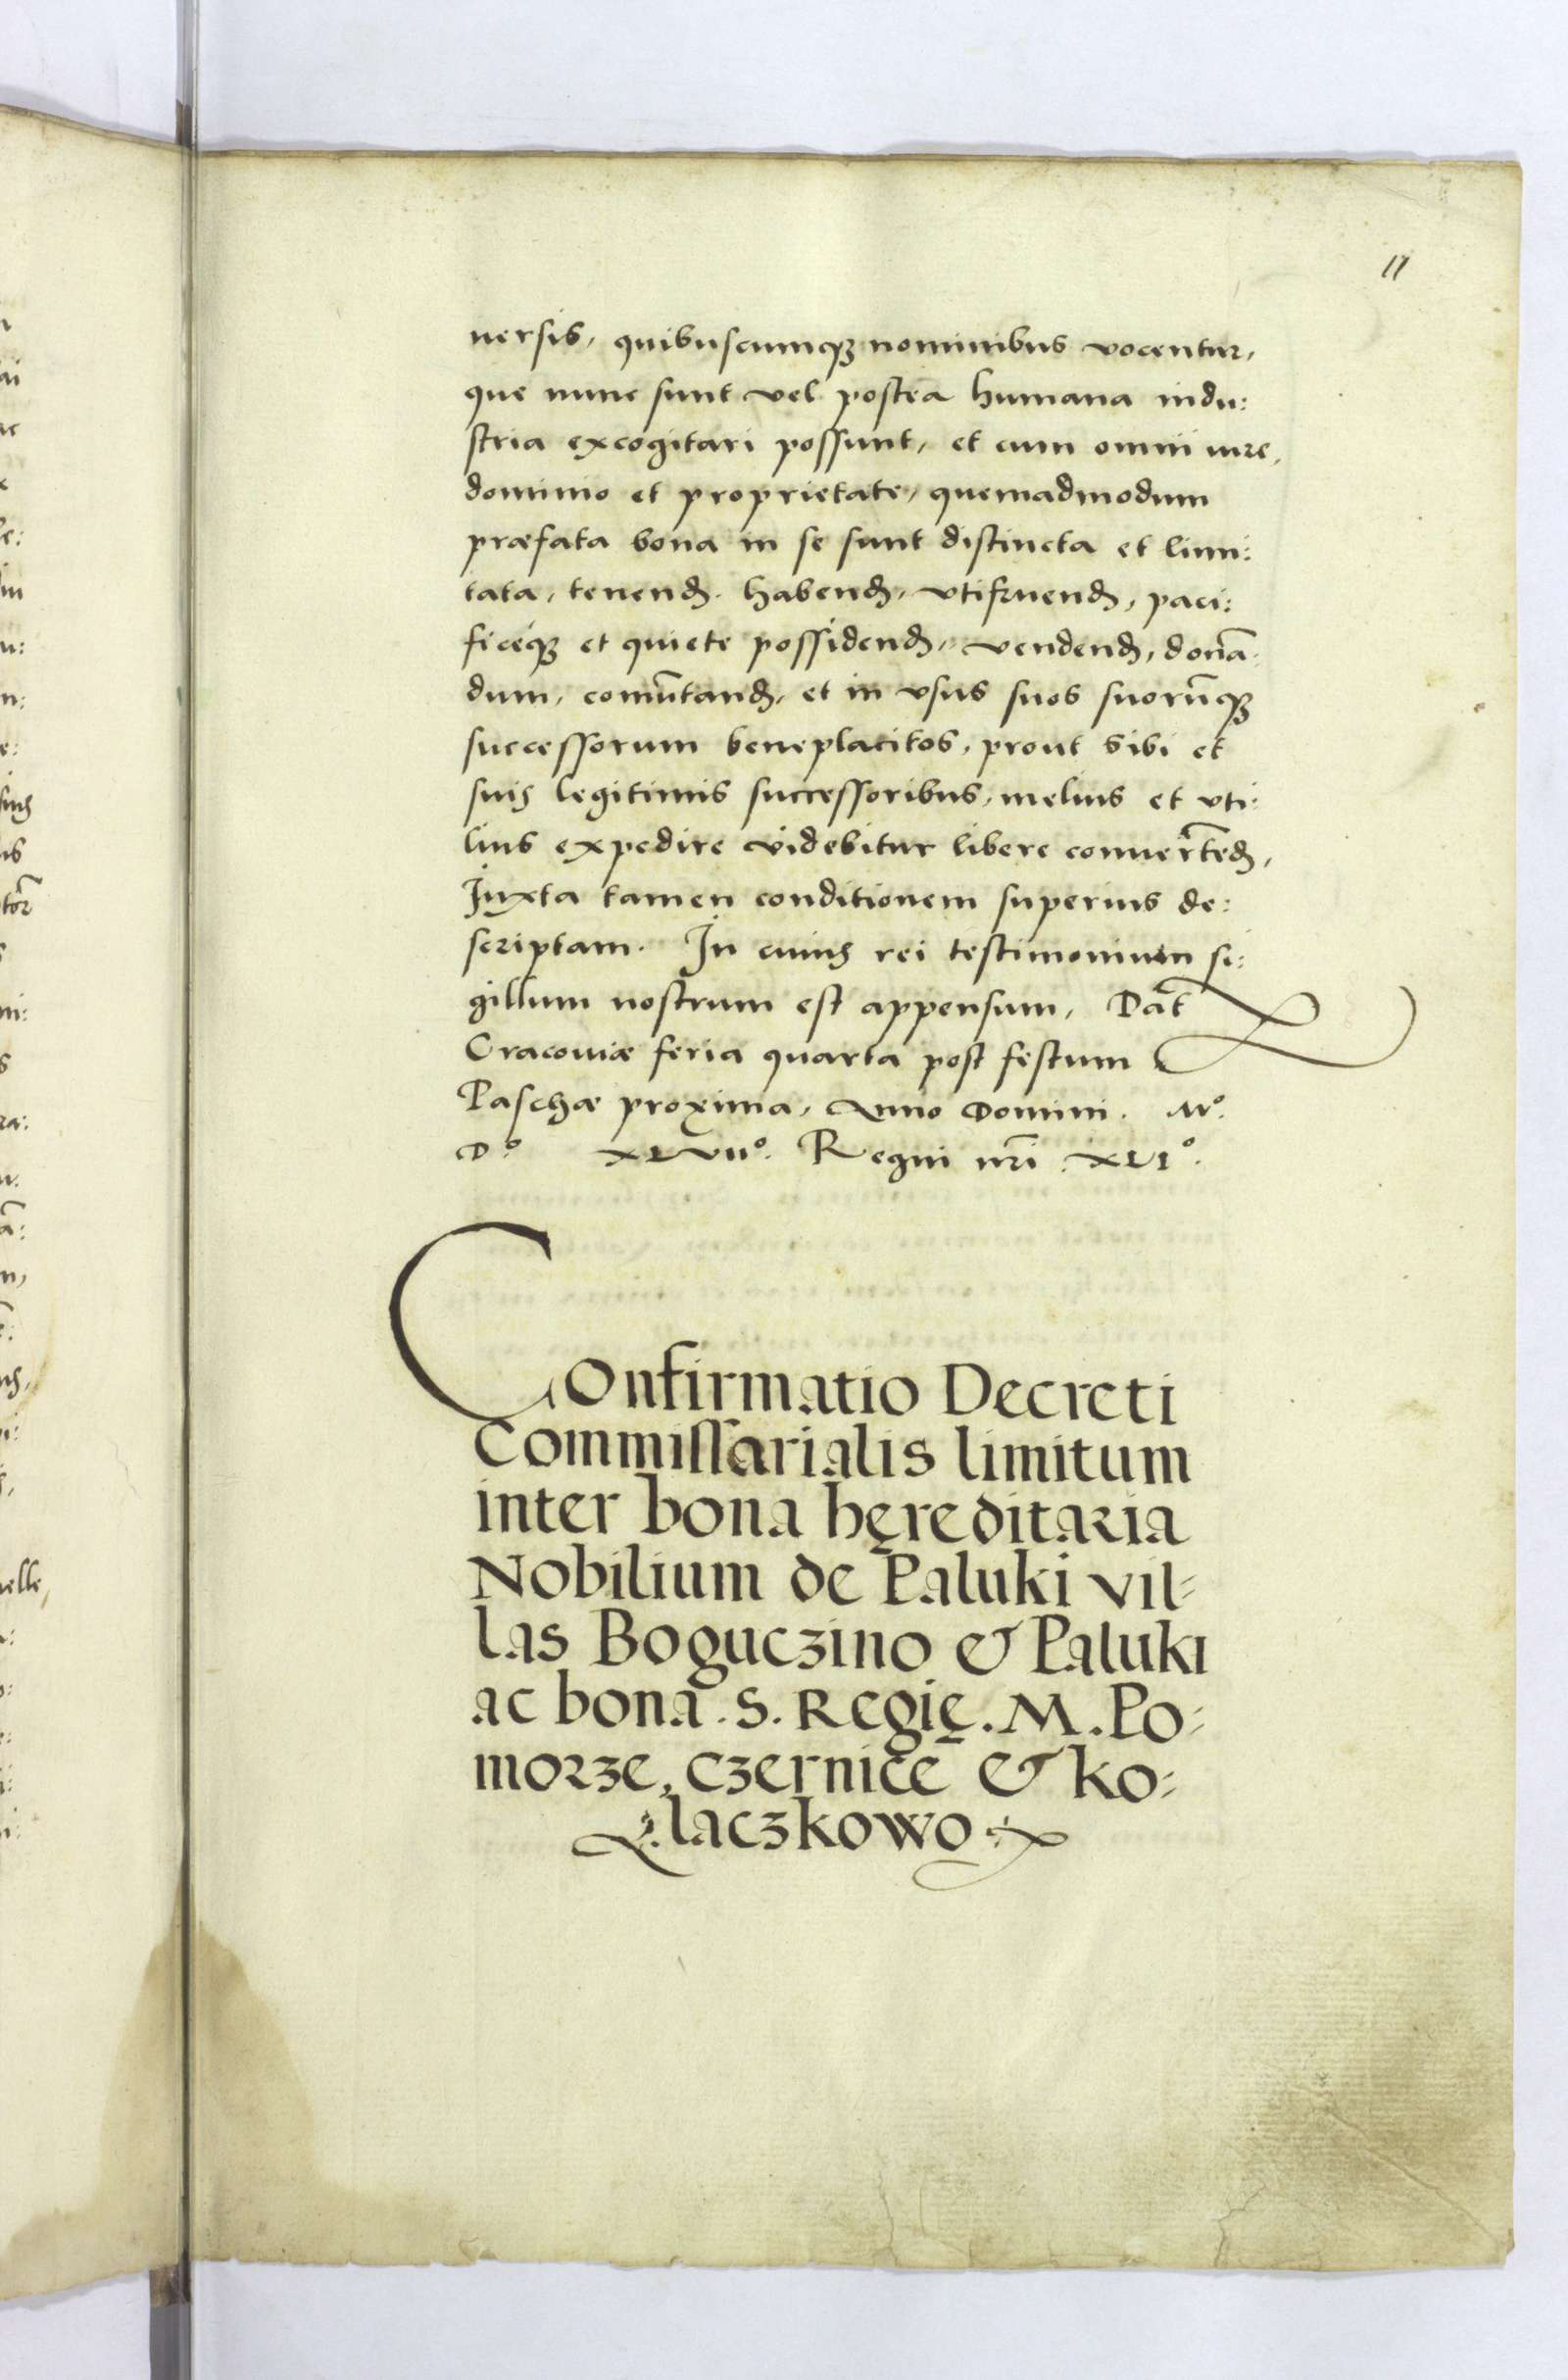 11
uersis, quibuscumqꝫ nominibus vocentur,
que nunc sunt vel postea humana indu:
stria excogitari possunt, et cum omni iure,
dominio et proprietate, quemadmodum
præfata bona in se sunt distincta et limi:
tata, tenend. habend, vtifruend, paci:
ficeqꝫ et quiete possidend, vendend, donā
dum, comūtand, et in vsus suos suorūqꝫ
successorum beneplacitos, prout sibi et
suis legitimis successoribus, melius et vti:
lius expedire videbitur libere conuerted,
Juxta tamen conditionem superius de:
scriptam. In cuius rei testimonium si:
gillum nostrum est appensum, Dat
Cracouiæ feria quarta post festum
Paschæ proxima, Anno Domini. Mº.
Dº XLVIIº. Regni nr̄i XLIº.
COnfirmatio Decreti
Commissarialis limitum
inter bona hęreditaria
Nobilium de Paluki vil-
las Boguczino & Paluki
ac bona. S. Regię. M. Po:
morze, Czernice & Ko:
laczkowo